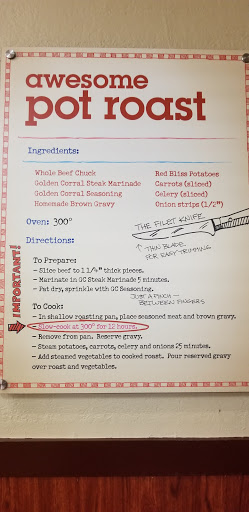 awesome
pot roast
Ingredients:
Whole Beef Chuck
Golden Corral Steak Marinade
Golden Corral Seasoning
Homemade Brown Gravy
Red Bliss Potatoes
Carrots (sliced)
Celery (sliced)
Onion strips (1/2")
Oven: 300°
THE FILET KNIFE
↑ THIN BLADE
FOR EASY TRIMMING
Directions:
To Prepare:
- Slice beef to 1 1/4" thick pieces.
- Marinate in GC Steak Marinade 5 minutes.
- Pat dry, sprinkle with GC Seasoning.
JUST A PINCH —
BETWEEN FINGERS
IMPORTANT!
To Cook:
- In shallow roasting pan, place seasoned meat and brown gravy.
- Slow-cook at 300° for 12 hours.
- Remove from pan. Reserve gravy.
- Steam potatoes, carrots, celery and onions 25 minutes.
- Add steamed vegetables to cooked roast. Pour reserved gravy
over roast and vegetables.